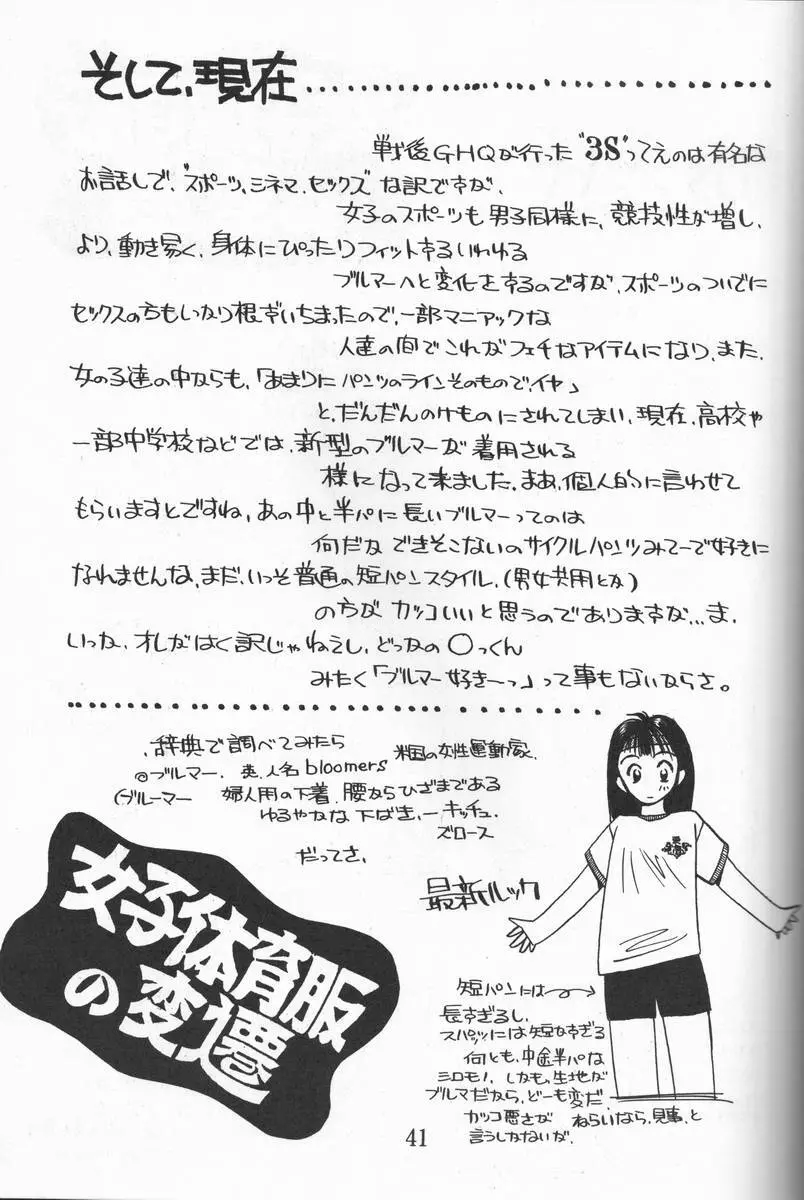 そして、現在‥‥‥‥‥‥‥‥‥‥‥‥‥‥
戦後GHQが行った"3S"ってえのは有名な
お話しで、"スポーツ、シネマ、セックス"な訳ですが、
女子のスポーツも男子同様に、競技性が増し、
より、動き易く、身体にぴったりフィットするいわゆる
ブルマーへと変化をするのですが、スポーツのついでに
セックスの方もしっかり根ずいちまったので、一部マニアックな
人達の間でこれがフェチなアイテムになり、また、
女の子達の中からも、「あまりにパンツのラインそのものでイヤ」
と、だんだんのけものにされてしまい、現在、高校や
一部中学校などでは、新型のブルマーが着用される
様になって来ました。まあ、個人的に言わせて
もらいますとですね、あの中と半パに長いブルマーってのは
何だかできそこないのサイクルパンツみてーで好きに
なれませんな、まだ、いっそ普通の短パンスタイル、(男女共用とか)
の方がカッコいいと思うのでありますが…ま、
いっか、オレがはく訳じゃねえし、どっかの○っくん
みたく「ブルマー好き〜っ」って事もないからさ。
辞典で調べてみたら
◎ブルマー、英、人名bloomers 米国の女性運動家、
(ブルーマー 婦人用の下着、腰からひざまである
ゆるやかな下ばき、―キッチュ、
ズロース
だってさ、
女子体育服
の変遷
最新ルック
短パンには
長すぎるし、
スパッツには短かすぎる
何とも、中途半パな
シロモノ、しかも、生地が
ブルマだから、どーも変だ、
カッコ悪さが ねらいなら、見事、と
言うしかないが、
41